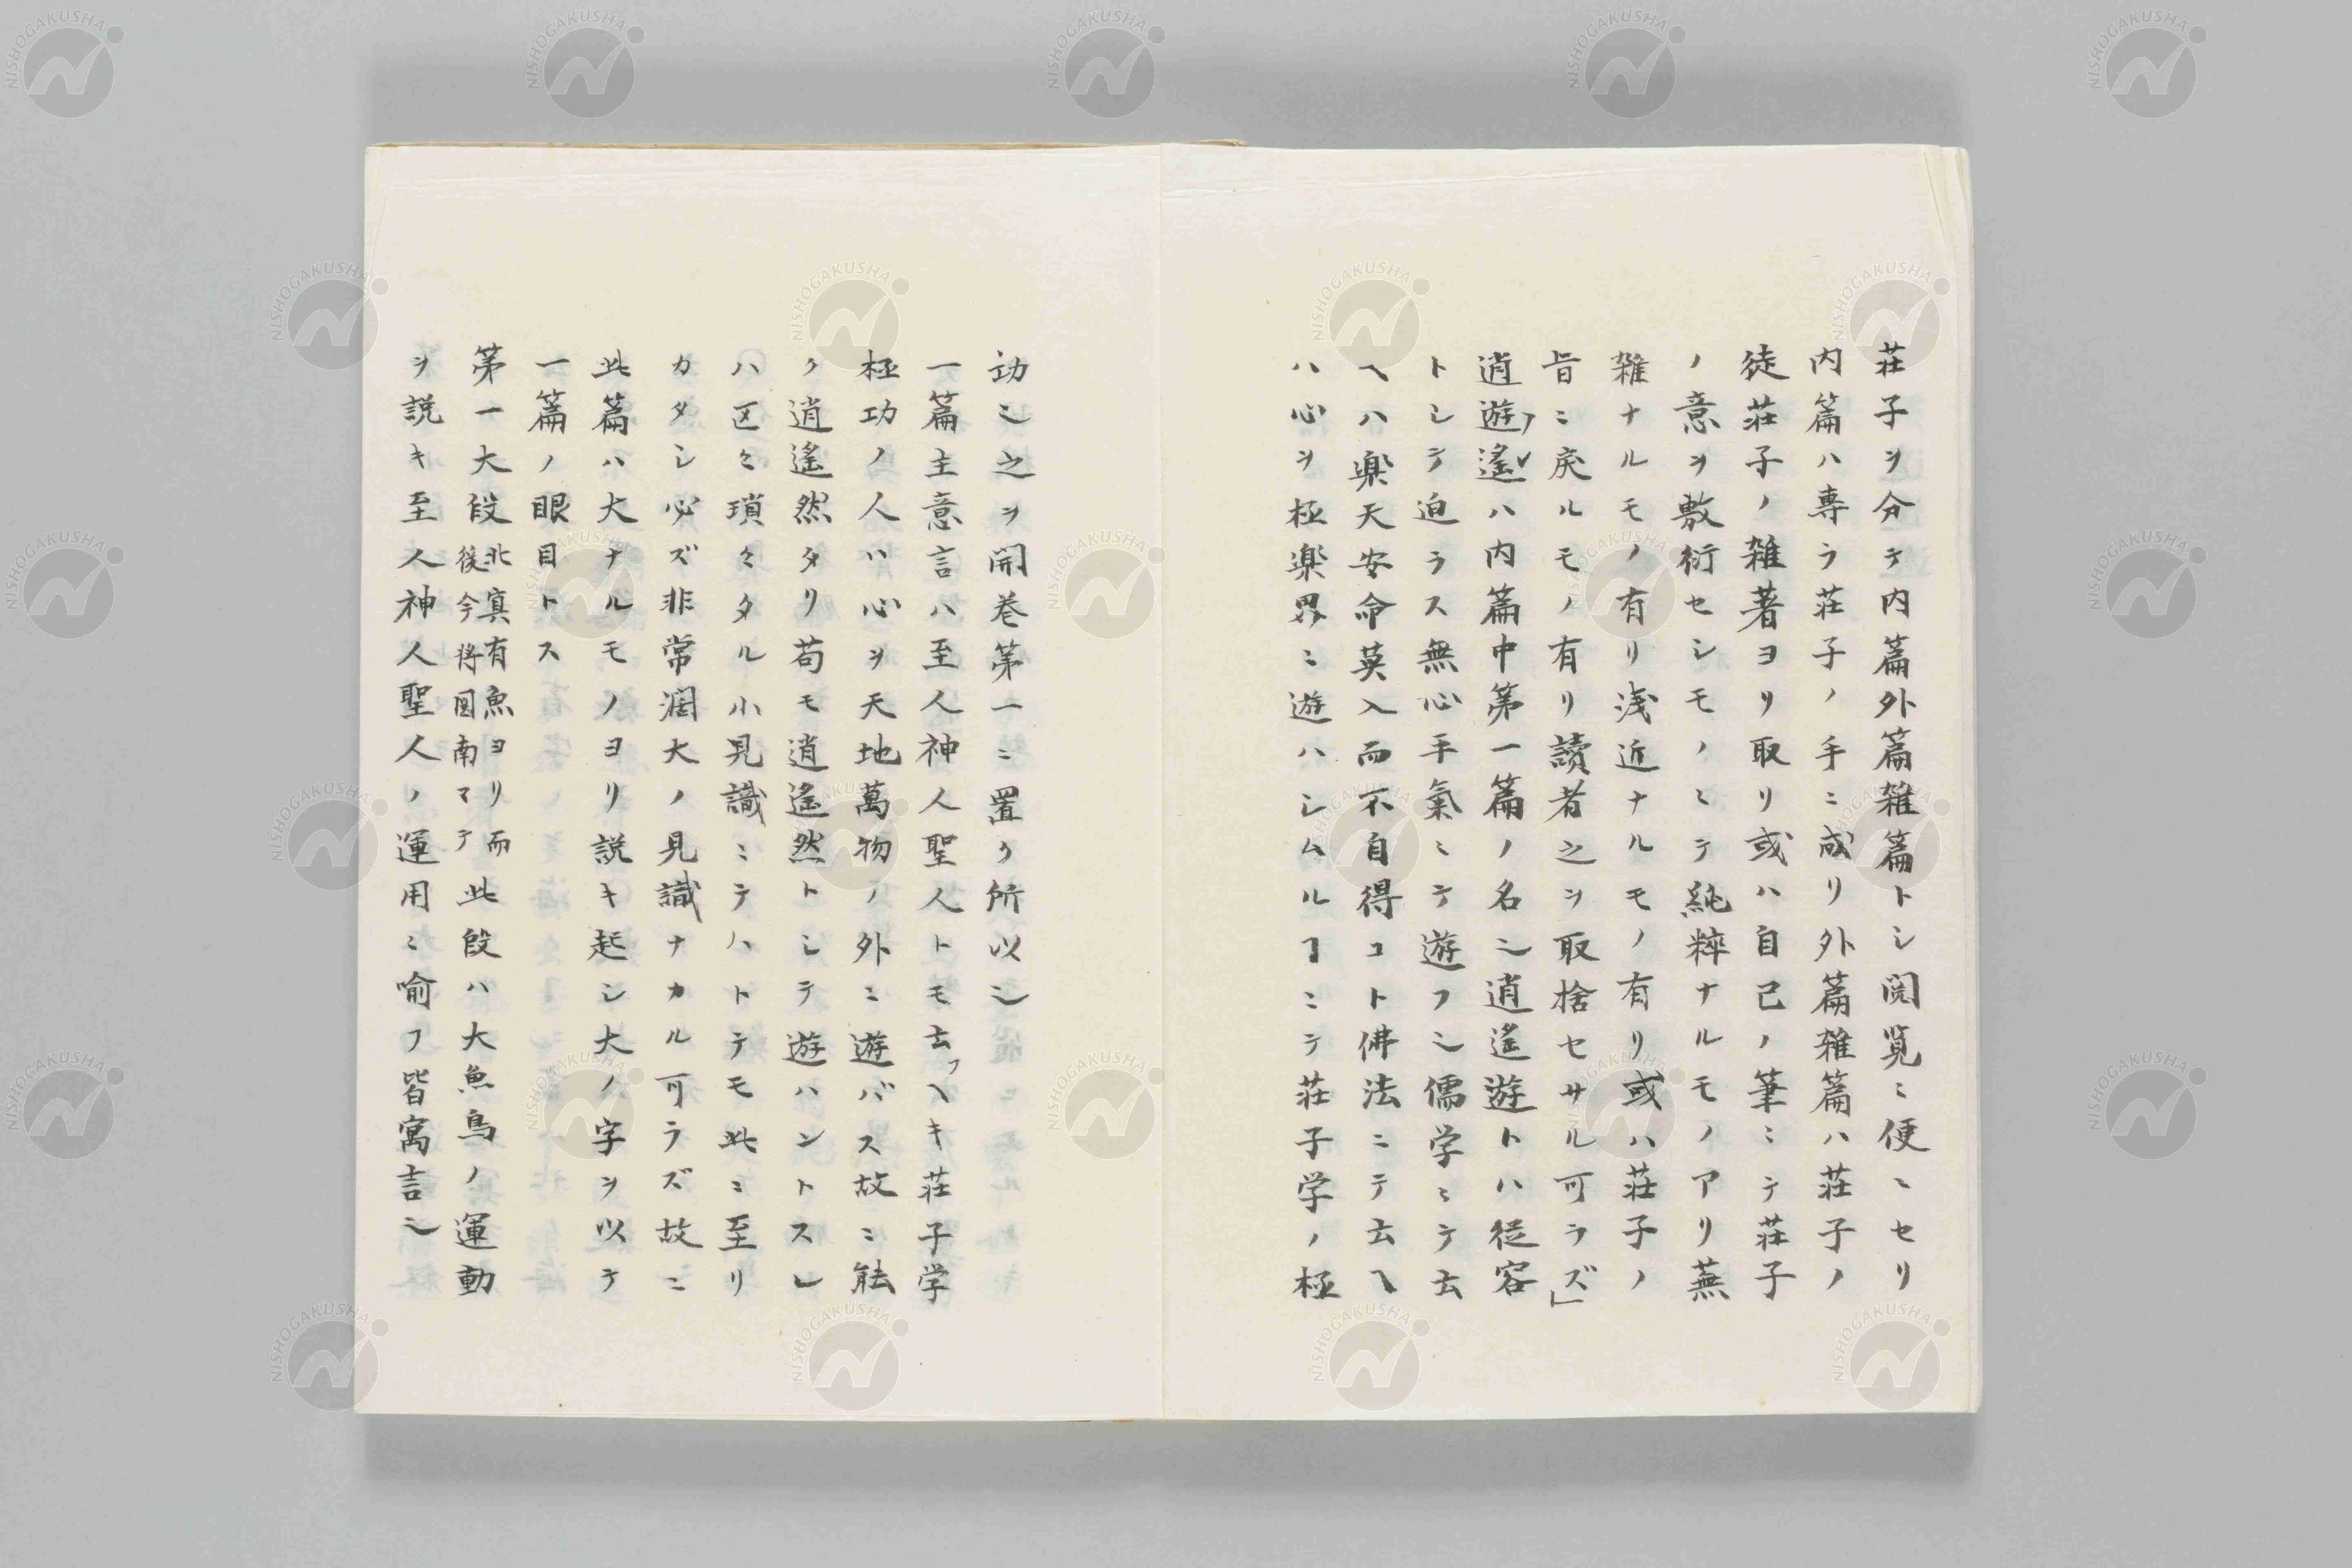 荘子ヲ分チ内篇外篇雑篇トシ閲覧ニ便ニセリ
内篇ハ専ラ荘子ノ手ニ成リ外篇雑篇ハ荘子ノ
徒荘子ノ雑著ヨリ取リ或ハ自己ノ筆ニテ荘子
ノ意ヲ敷衍セシモノニテ純粹ナルモノアリ蕪
雑ナルモノ有リ浅近ナルモノ有リ或ハ荘子ノ
旨ニ戾ルモノ有リ讀者之ヲ取捨セサル可ラズ」
逍遊遙ハ内篇中第一篇ノ名ニ逍遙遊トハ従容
トシテ迫ラス無心平氣ニテ遊フニ儒学ニテ云
ヘハ楽天安命莫入而不自得コト佛法ニテ云ヘ
ハ心ヲ極楽界ニ遊ハシムルヿニテ荘子学ノ極
功ニ之ヲ開巻第一ニ置ク所以ニ
一篇主意言ハ至人神人聖人トモ云フヘキ荘子学
極功ノ人ハ心ヲ天地萬物ノ外ニ遊バス故ニ能
ク逍遙然タリ苟モ逍遙然トシテ遊ハントスレ
ハ区々瑣々タル小見識ニテハトテモ此ニ至リ
カタシ必ズ非常濶大ノ見識ナカル可ラズ故ニ
此篇ハ大ナルモノヨリ説キ起シ大ノ字ヲ以テ
一篇ノ眼目トス
第一大段北冥有魚ヨリ而後今将図南マテ此段ハ大魚鳥ノ運動
ヲ説キ至人神人聖人ノ運用ニ喩フ皆寓言ニ
NISHOGAKUSHA